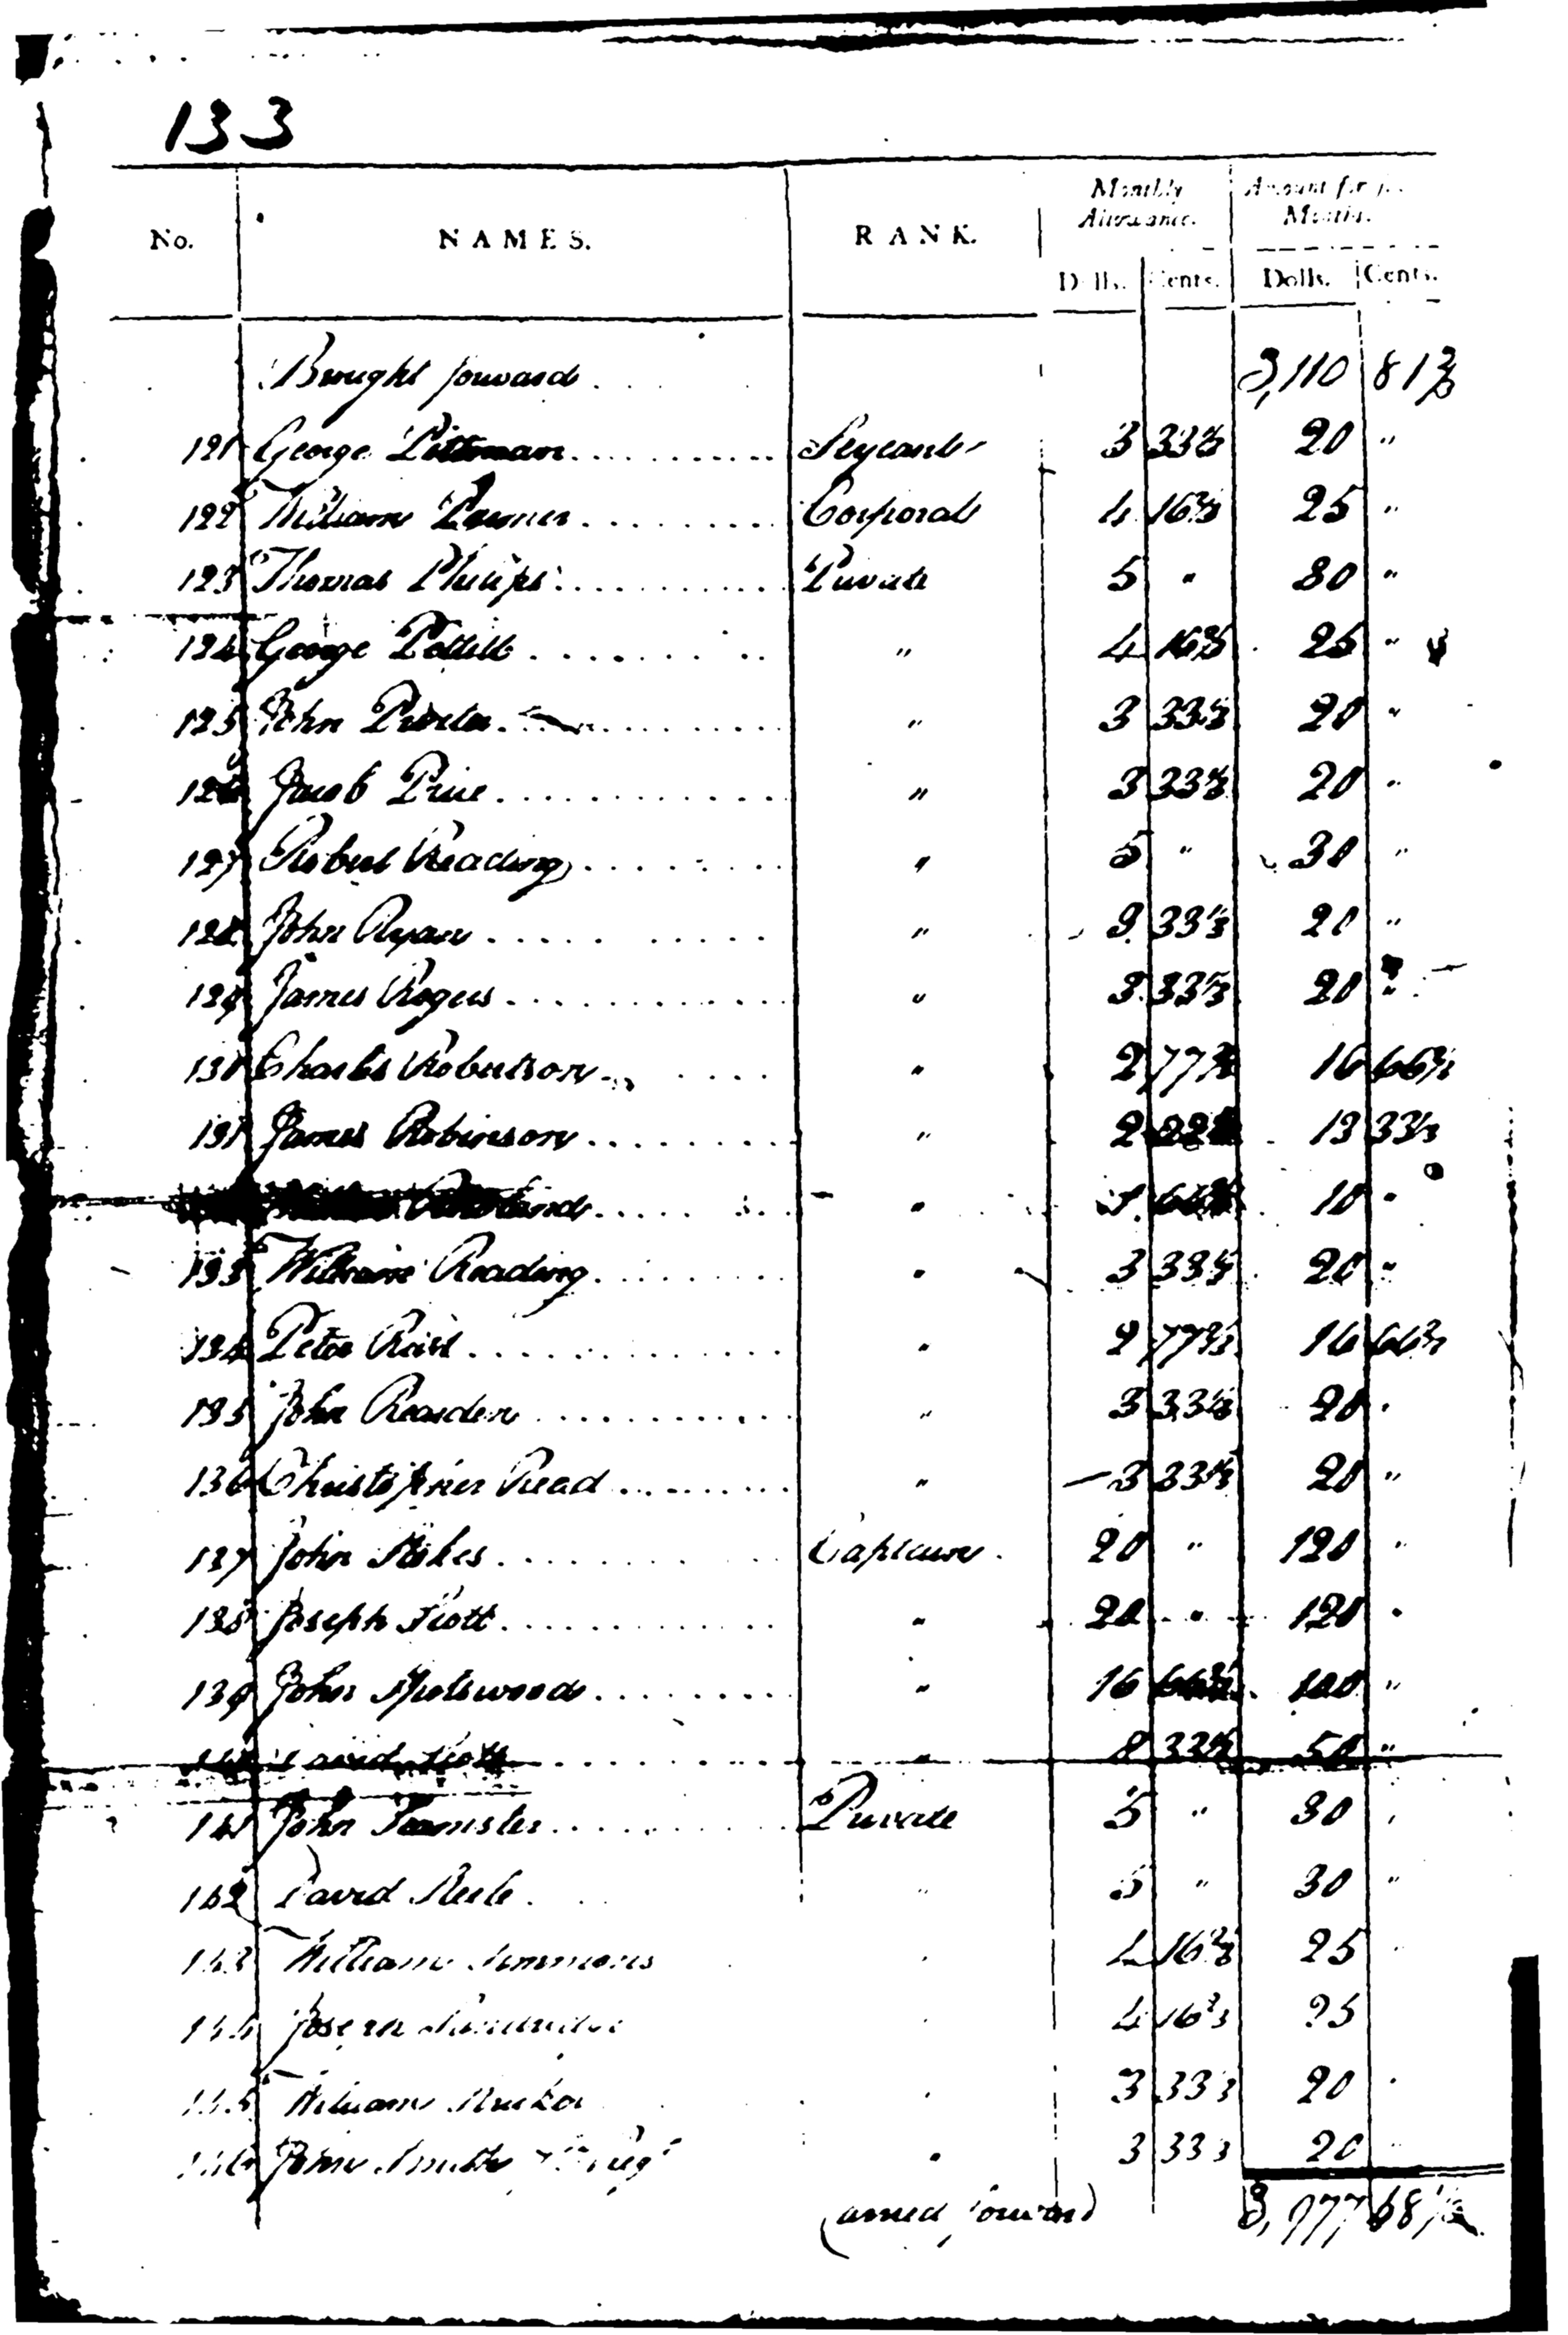 133
No. NAMES. RANK. Monthly Allowance. Amount for
Months.
Dolls. Cents. Dolls. Cents.
Brought forward 3,110 81 2/3
121 George Pittman Serjeant 3 33 1/3 20 "
122 William Corporal 4 16 2/3 25 "
123 Thomas Philips Private 5 " 30 "
124 George Pettill " 4 16 2/3 25 "
125 John Procter " 3 33 1/3 20 "
126 Jacob Price " 3 33 1/3 20 "
127 Robert Reading " 5 " 30 "
128 John Ryan " 3 33 1/3 20 "
129 James Rogers " 3 33 1/3 20 "
130 Charles Robertson " 2 77 16 66 2/3
131 James Robinson " 2 22 13 33 1/3
" 1 66 10 "
133 William Reading " 3 33 1/3 20 "
134 Peter " 2 77 2/3 16 66 2/3
135 John Rearden " 3 33 1/3 20 "
136 Christopher Read " 3 33 1/3 20 "
137 John Stokes Captain 20 " 120 "
138 Joseph Scott " 20 " 120 "
139 John Spotswood " 16 66 2/3 100 "
140 David Scott " 8 33 1/3 50 "
141 John Private 5 " 30 "
142 David Steele " 5 " 30 "
143 William Simmons " 4 16 2/3 25 "
144 Joseph " 4 16 2/3 25
145 William " 3 33 1/3 20 "
146 John Smith " 3 33 1/3 20 "
Carried forward 3,977 68 1/3